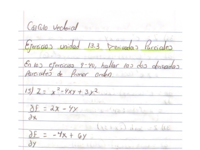 Cálculo vectorial
Ejercicios unidad 13.3 Derivadas Parciales
En los ejercicios 9-40, hallar las dos derivadas
parciales de primer orden.
15) Z = x² - 4xy + 3y²
∂z = 2x - 4y
∂x
∂z = -4x + 6y
∂y